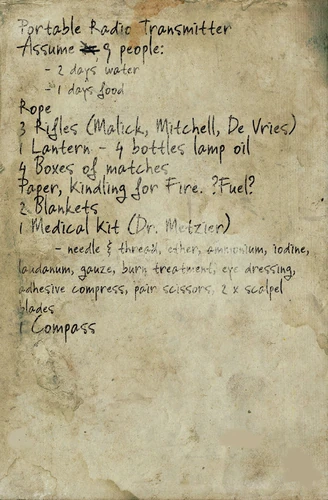 Portable Radio Transmitter
Assume 9 people:
- 2 days water
- 1 days food
Rope
3 Rifles (Malick, Mitchell, De Vries)
1 Lantern - 4 bottles lamp oil
4 Boxes of matches
Paper, kindling for Fire. ?Fuel?
2 Blankets
1 Medical Kit (Dr. Metzier)
- needle & thread, ether, ammonium, iodine,
laudanum, gauze, burn treatment, eye dressing,
adhesive compress, pair scissors, 2 x scalpel
blades
1 Compass